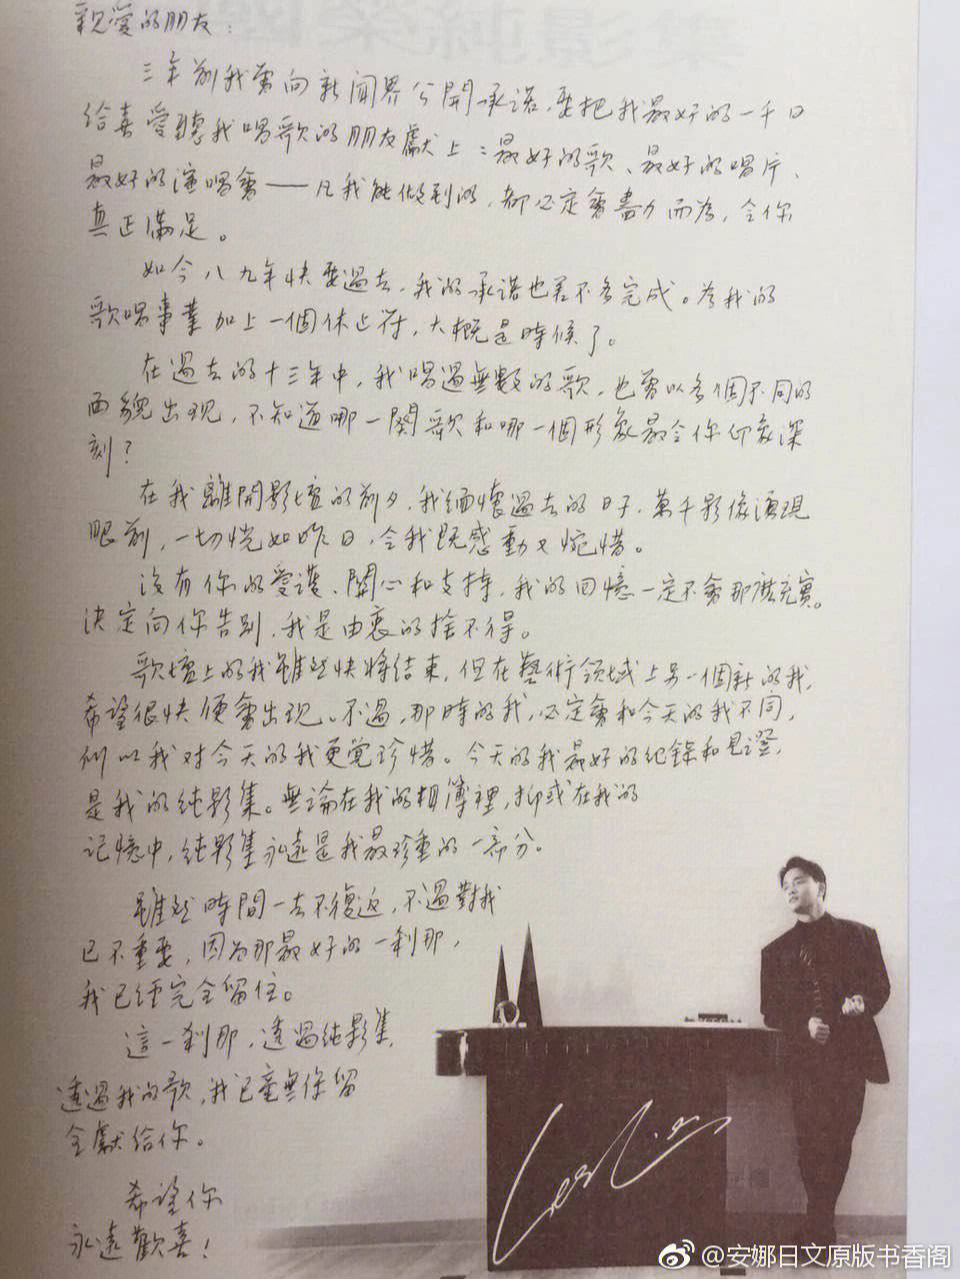 國榮純影集
親愛的朋友：
三年前我曾向新聞界公開承諾，要把我最好的一千日
給喜愛聽我唱歌的朋友獻上：最好的歌、最好的唱片、
最好的演唱會——凡我能做到的，都必定會盡力而為，令你
真正滿足。
如今八九年快要過去，我的承諾也差不多完成。為我的
歌唱事業加上一個休止符，大概是時候了。
在過去的十三年中，我唱過無數的歌，也曾以多個不同的
面貌出現，不知道哪一闋歌和哪一個形象最令你印象深
刻？
在我離開影壇的前夕，我緬懷過去的日子，萬千影像湧現
眼前，一切恍如昨日，令我既感動又惋惜。
沒有你的愛護、関心和支持，我的回憶一定不會那麼充實。
決定向你告別，我是由衷的捨不得。
歌壇上的我雖然快將結束，但在藝術領域上另一個新的我，
希望很快便會出現。不過，那時的我，必定會和今天的我不同，
所以我对今天的我更覺珍惜。今天的我最好的紀錄和見證，
是我的純影集。無論在我的相簿裡，抑或在我的
記憶中，純影集永遠是我最珍重的一部分。
雖然時間一去不復返，不過對我
已不重要，因为那最好的一剎那，
我已經完全留住。
這一剎那，透過純影集，
透過我的歌，我已毫無保留
全獻給你。
希望你
永遠歡喜！
Leslie
@安娜日文原版书香阁